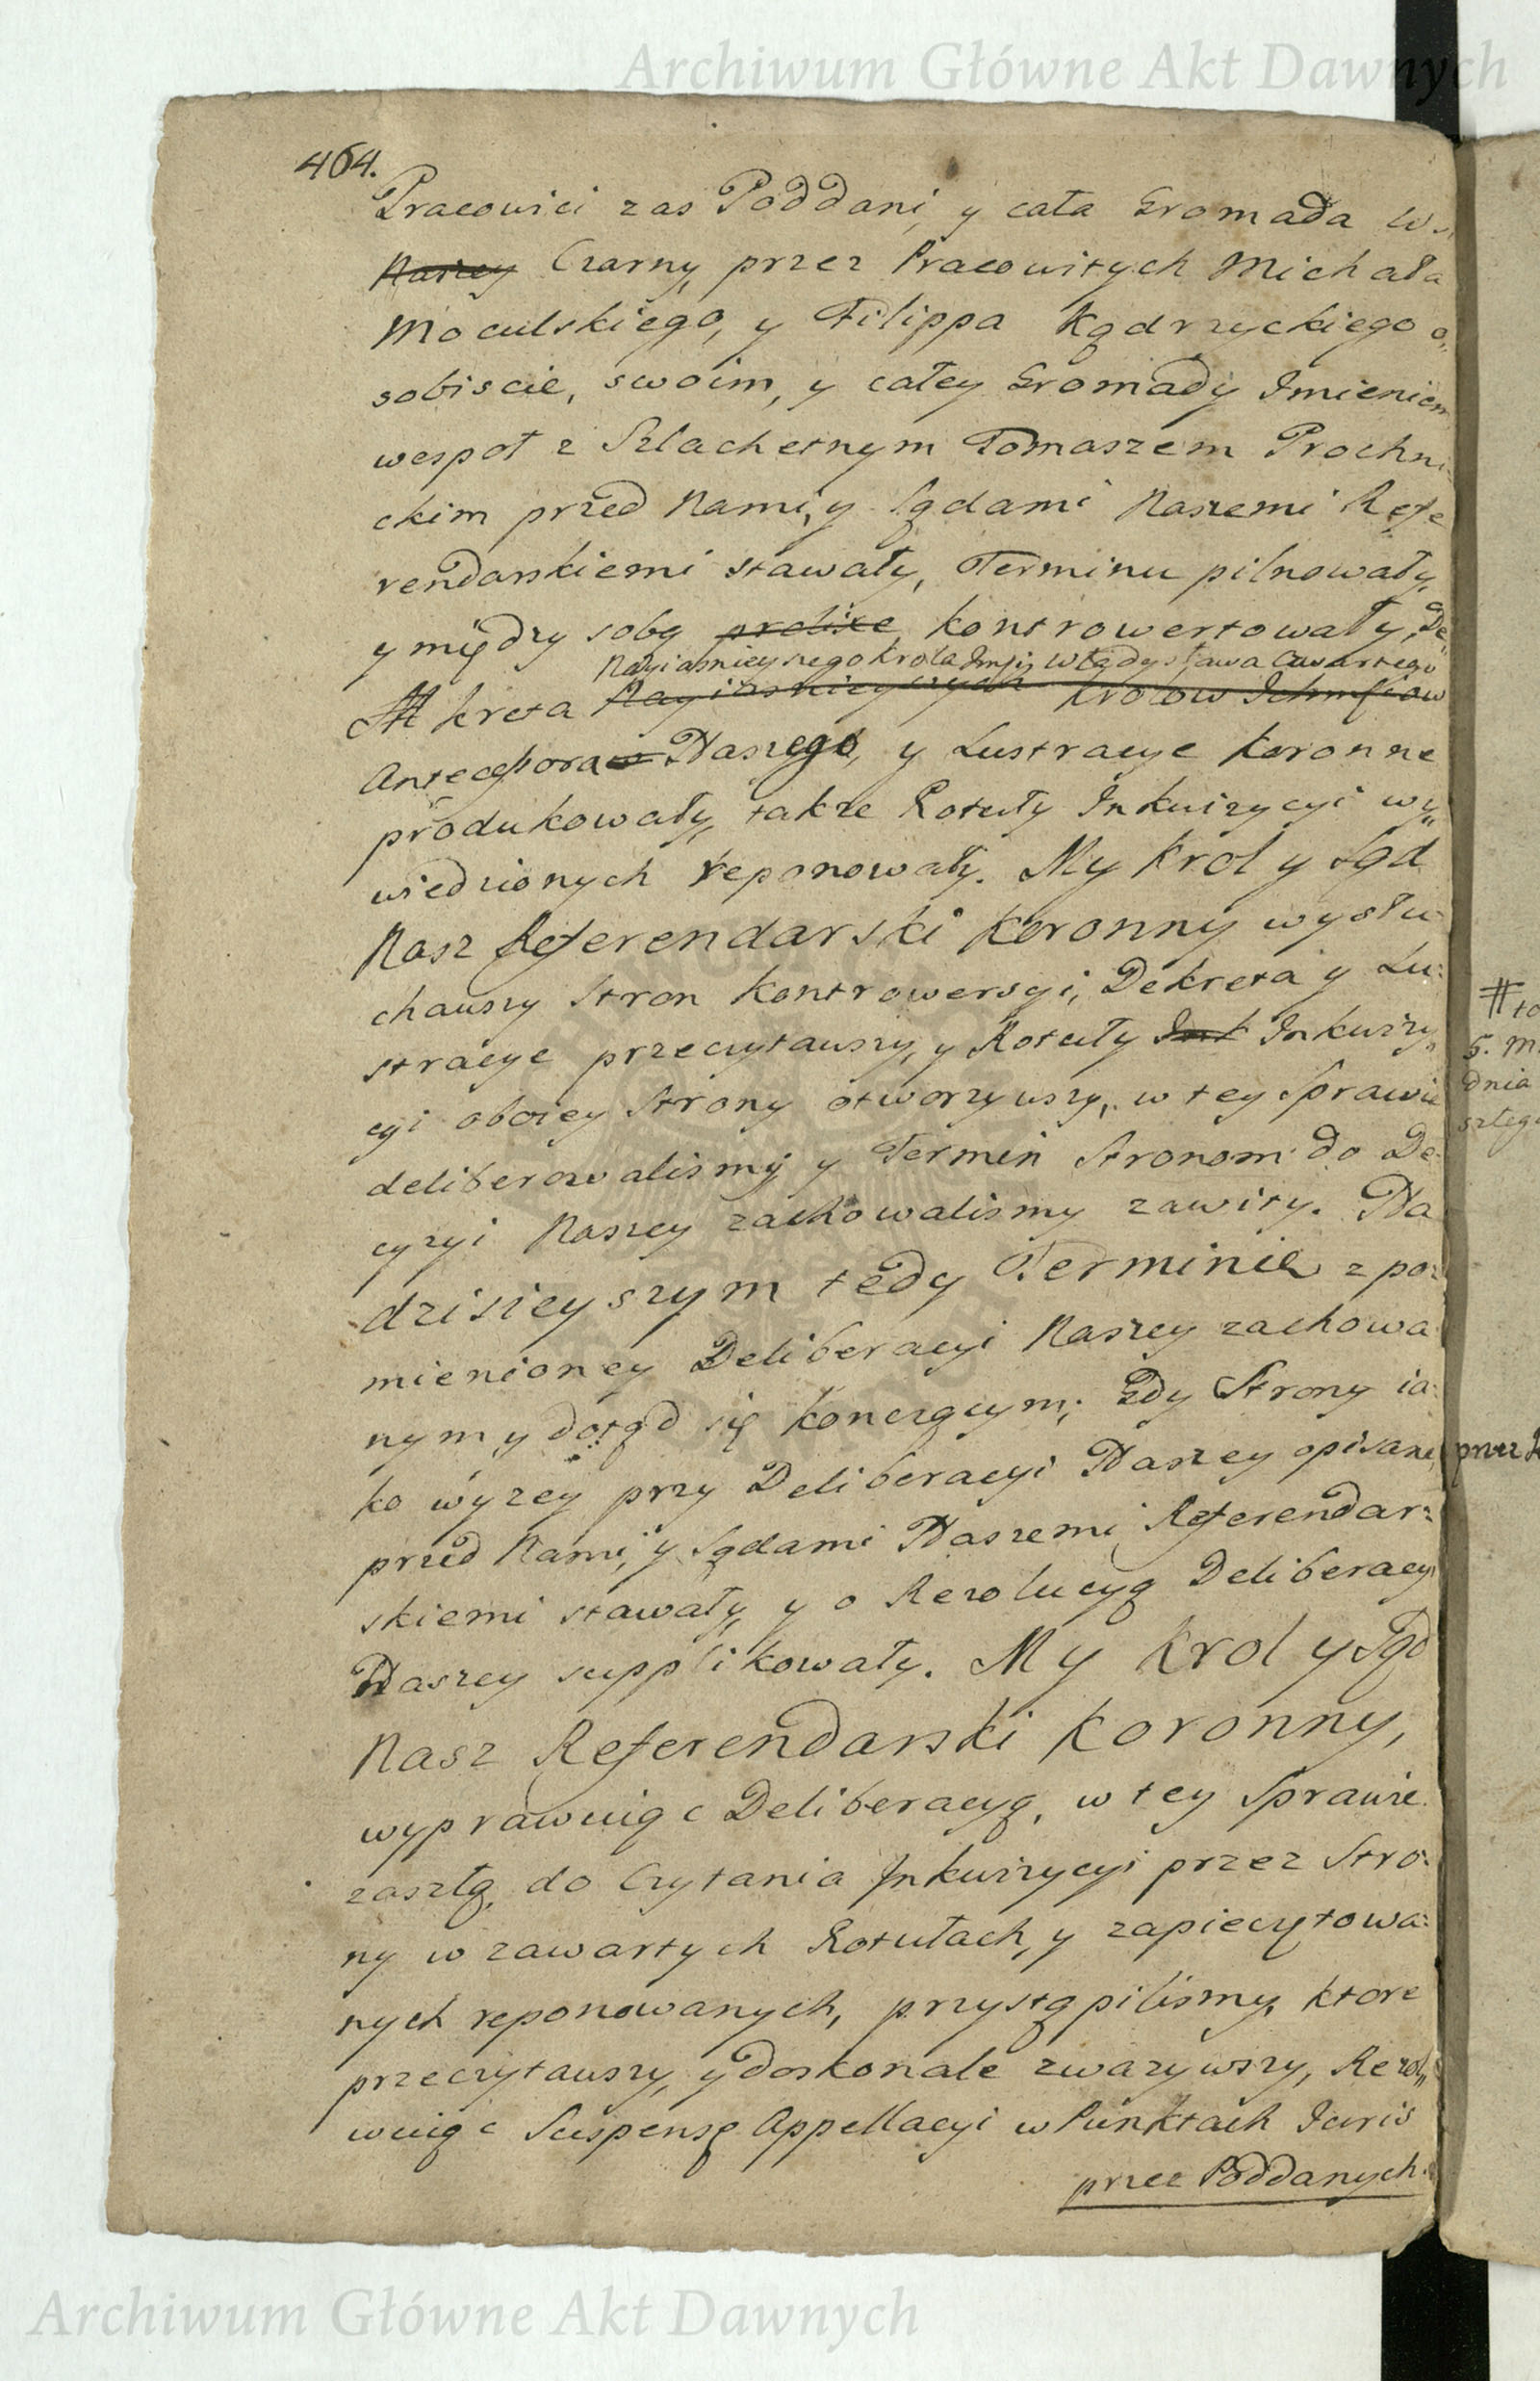 Archiwum Główne Akt Dawnych
464.
Pracowici zas Poddani, y cała Gromada Wsi
Naszey Czarny, przez Pracowitych Michała
Moculskiego, y Filippa Kądrzyckiego o„
sobiscie, swoim, y całey Gromady Imieniem
wespoł z Szlachetnym Tomaszem Prochni
ckim przed Nami, y Sądami Naszemi Refe
rendarskiemi stawały, Terminu pilnowały,
y między sobą prolixe kontrowertowały, De„
Nayiasnieyszego Krola Jmsci Władysława Czwartego
kreta Nayiasnieyszych Krolow Ichmsciow
Antecessora Naszego, y Lustracye Koronne
produkowały, takze Rotuły Inkwizycyi wy„
wiedzionych reponowały. My Krol y Sąd
Nasz Referendarski Koronny wysłu:
chawszy Stron Kontrowersyi, Dekreta y Lu:
stracye przeczytawszy, y Rotuły Ink Inkwizy„
cyi oboiey Strony otworzywszy, w tey Sprawie
deliberowalismy y Termin Stronom do De:
cyzyi Naszey zachowalismy zawity. Na
dzisieyszym tedy Terminie z po:
mienioney Deliberacyi Naszey zachowa
nym y dotąd się konczącym; Gdy Strony ia:
ko wyzey przy Deliberacyi Naszey opisane
przed Nami, y Sądami Naszemi Referendar:
skiemi stawały, y o Rezolucyą Deliberacyi
Naszey supplikowały. My Krol y Sąd
Nasz Referendarski Koronny,
wyprawuiąc Deliberacyą, w tey Sprawie
zaszłą, do Czytania Inkwizycyi przez Stro:
ny w zawartych Rotułach, y zapieczętowa:
nych reponowanych, przystąpilismy, ktore
przeczytawszy, y doskonale zwazywszy, Rezol„
wuiąc Suspensę Appellacyi w Punktach Juris
przez Poddanych
Archiwum Główne Akt Dawnych